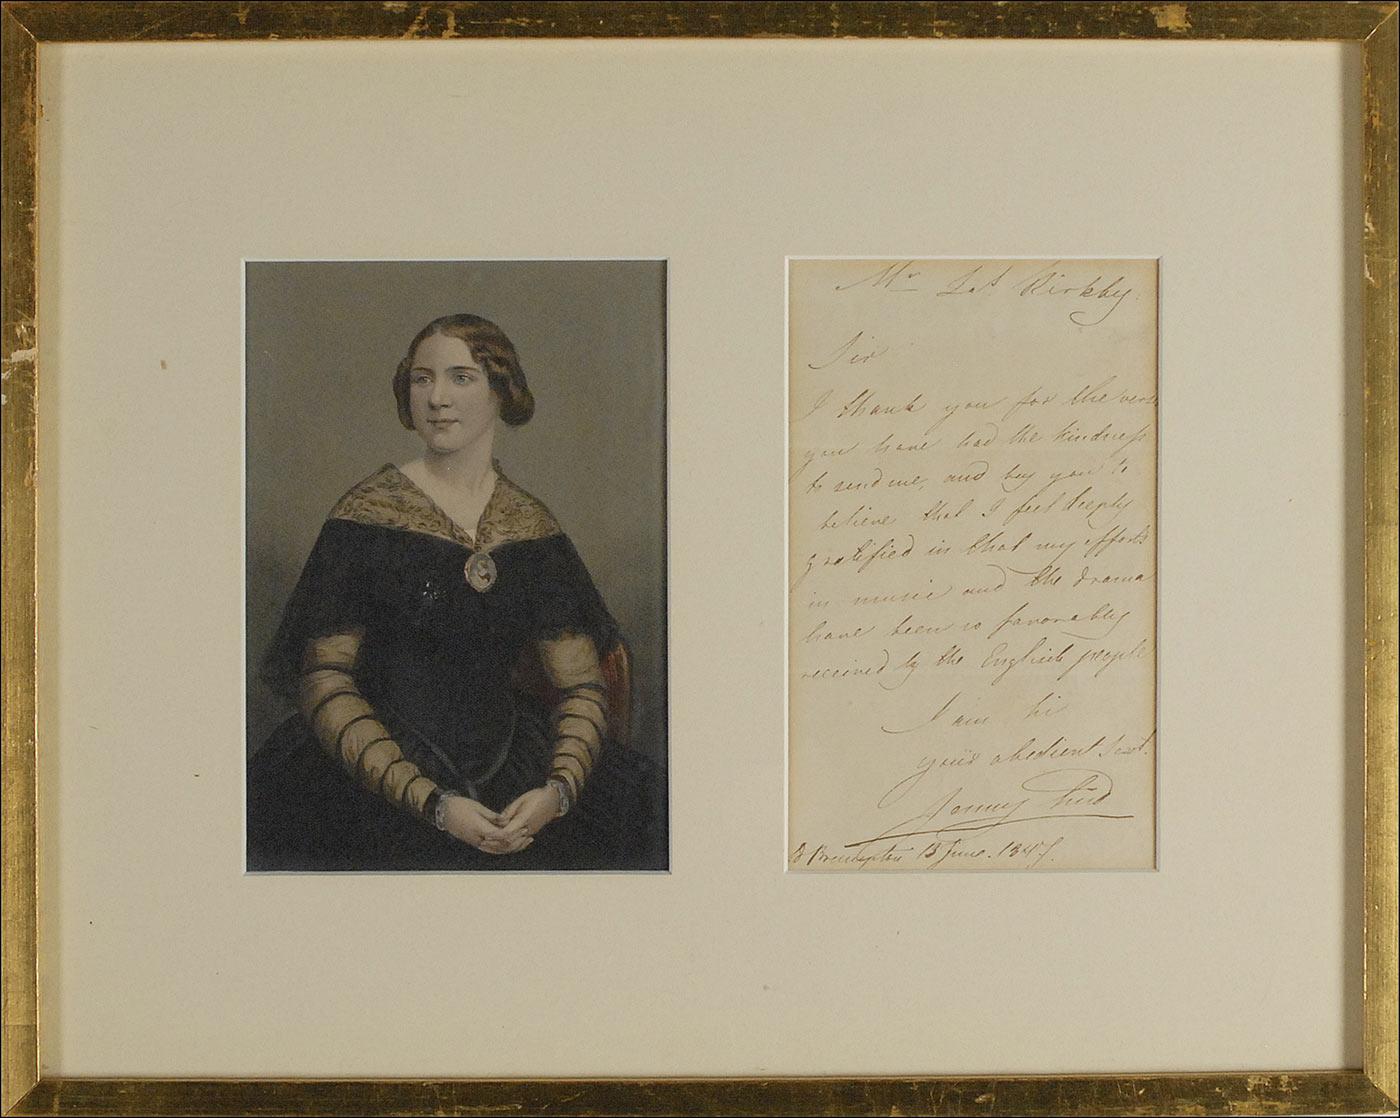 Mr Kirkby.
Sir
I thank you for the vers
you have had the kindness
to send me, and beg you to
believe that I feel deeply
gratified in that my efforts
in music and the drama
have been so favorably
received by the English people
I am
your obedient Servt.
Jenny Lind
Brompton 13 June. 1847.